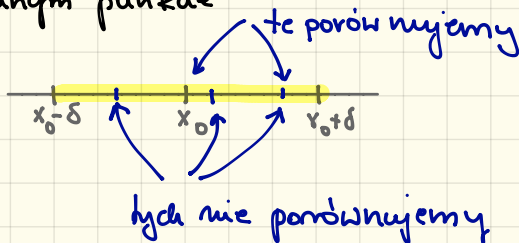 nym punkcie
te porównujemy
x₀-δ x₀ x₀+δ
tych nie porównujemy